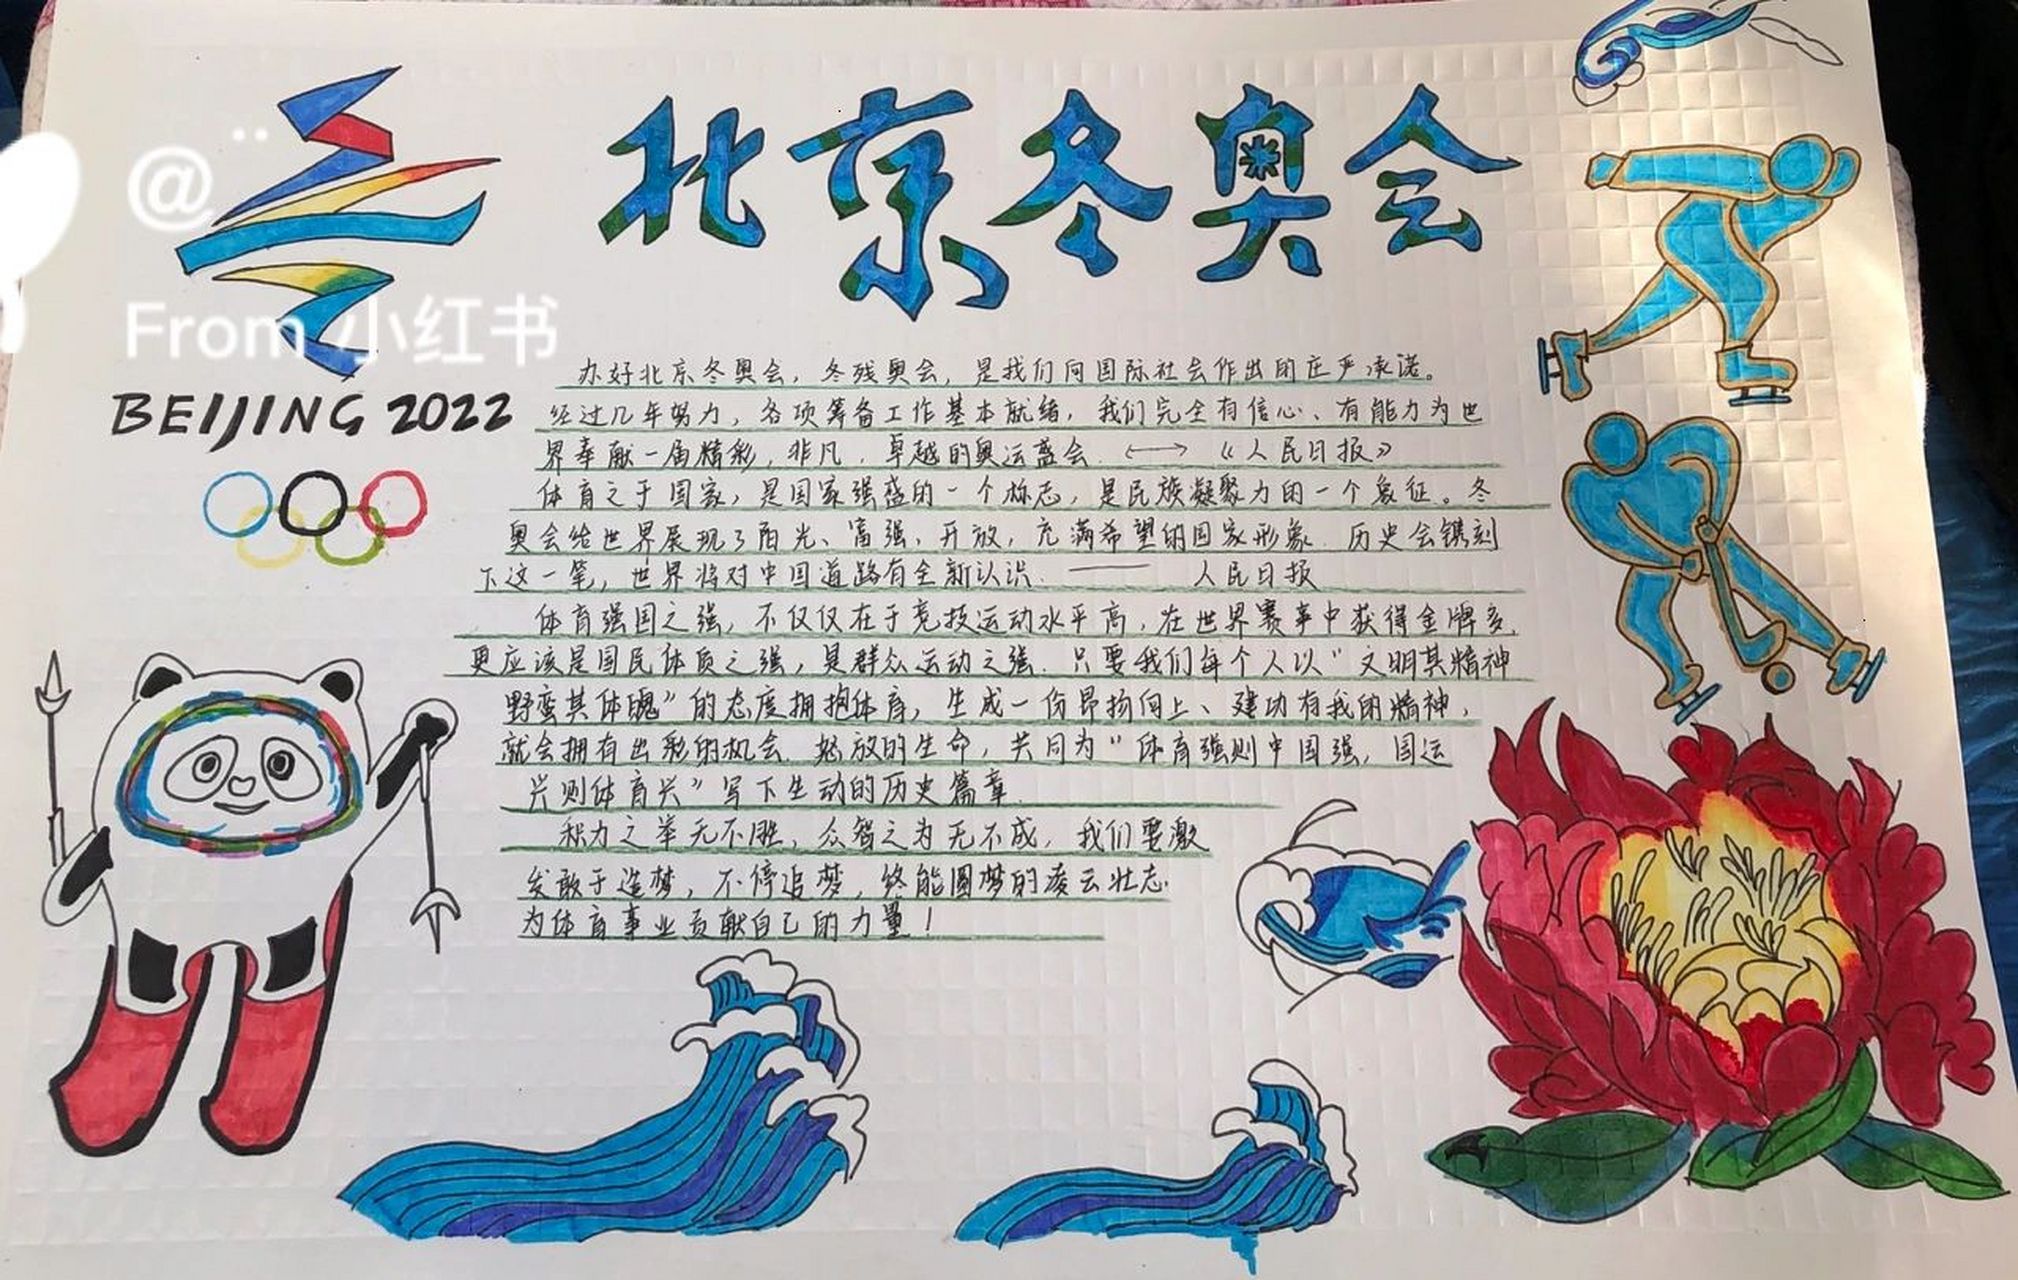 北京冬奥会
@¨
From 小红书
BEIJING 2022
办好北京冬奥会，冬残奥会，是我们向国际社会作出的庄严承诺。
经过几年努力，各项筹备工作基本就绪，我们完全有信心、有能力为世
界奉献一届精彩，非凡，卓越的奥运盛会.《人民日报》
体育之于国家，是国家强盛的一个标志，是民族凝聚力的一个象征。冬
奥会给世界展现了阳光、富强、开放，充满希望的国家形象.历史会镌刻
下这一笔，世界将对中国道路有全新认识.——人民日报
体育强国之强，不仅仅在于竞技运动水平高，在世界赛事中获得金牌多，
更应该是国民体质之强，是群众运动之强.只要我们每个人以“文明其精神
野蛮其体魄”的态度拥抱体育，生成一份昂扬向上、建功有我的精神，
就会拥有出彩的机会.怒放的生命，共同为“体育强则中国强，国运
兴则体育兴”写下生动的历史篇章.
积力之举无不胜，众智之为无不成，我们要激
发敢于造梦，不停追梦，终能圆梦的凌云壮志.
为体育事业贡献自己的力量！